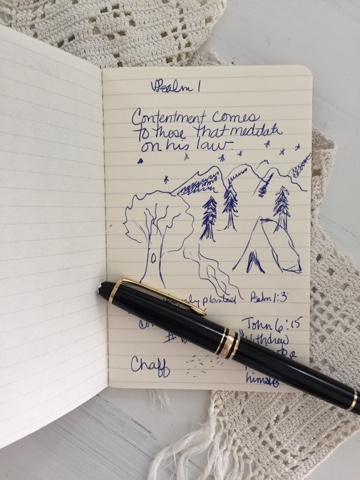 Psalm 1
Contentment comes
to those that meditate
on his law
planted Psalm 1:3
John 6:15
withdrew
Chaff
himself